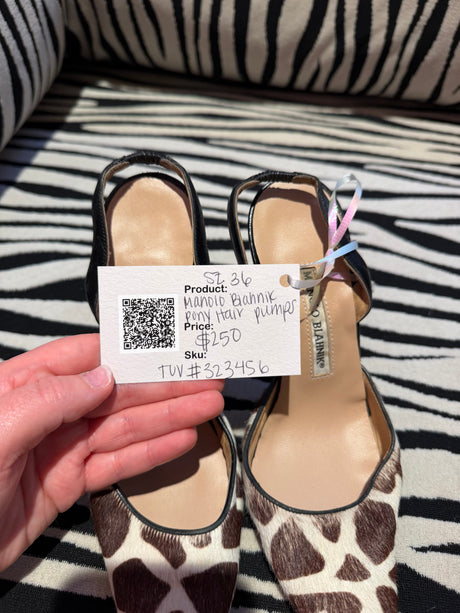 SZ 36
Product:
Manolo Blahnik
Pony Hair pumps
Price:
$250
Sku:
TUV#323456
O BLAHNIK